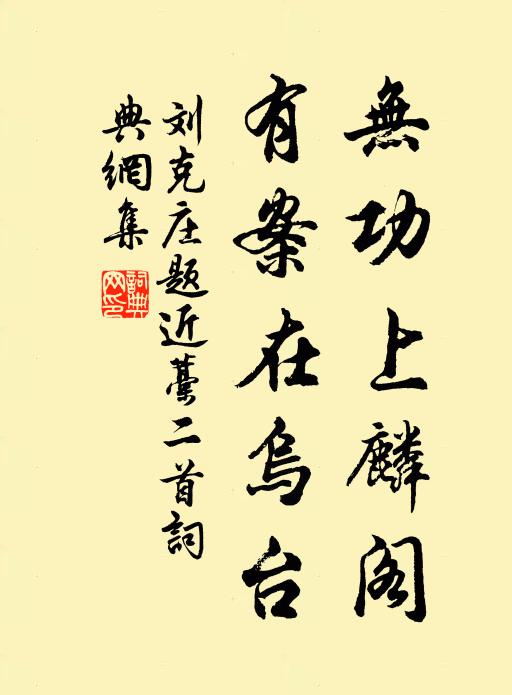 無功上麟阁
有案在烏台
刘克庄题近藁二首詞
典網集
詞典
网印